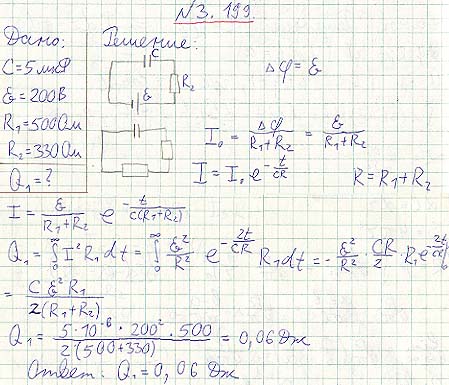 №3.199.
Дано: Решение:
C=5 мкФ
ℰ=200В
R₁=500Ом
R₂=330Ом
Q₁=?
C
R₂
ℰ
Δφ = ℰ
I₀ = Δφ/(R₁+R₂) = ℰ/(R₁+R₂)
I = I₀ e^(-t/(CR)) R=R₁+R₂
I = ℰ/(R₁+R₂) e^(-t/(C(R₁+R₂)))
Q₁ = ∫₀^∞ I² R₁ dt = ∫₀^∞ ℰ²/R² e^(-2t/(CR)) R₁ dt = - ℰ²/R² · CR/2 · R₁ e^(-2t/(CR)) |₀^∞
= Cℰ²R₁/(2(R₁+R₂))
Q₁ = (5·10⁻⁶ · 200² · 500)/(2(500+330)) = 0,06 Дж
Ответ: Q₁=0,06 Дж